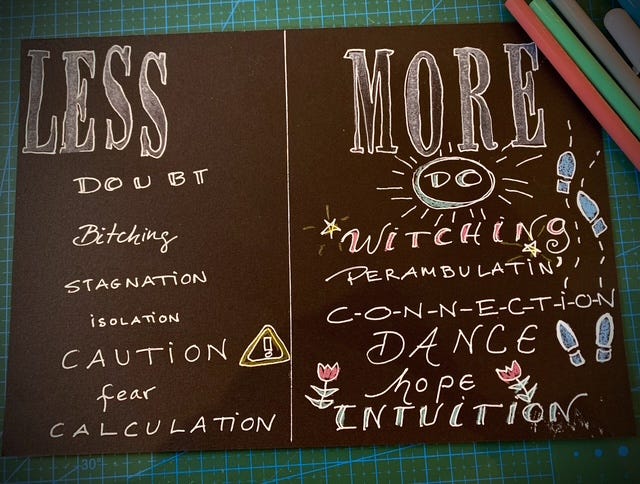 LESS
DOUBT
Bitching
STAGNATION
ISOLATION
CAUTION !
fear
CALCULATION
MORE
DO
WITCHING
PERAMBULATIN'
C-O-N-N-E-C-T-I-O-N
DANCE
hope
INTUITION
30°